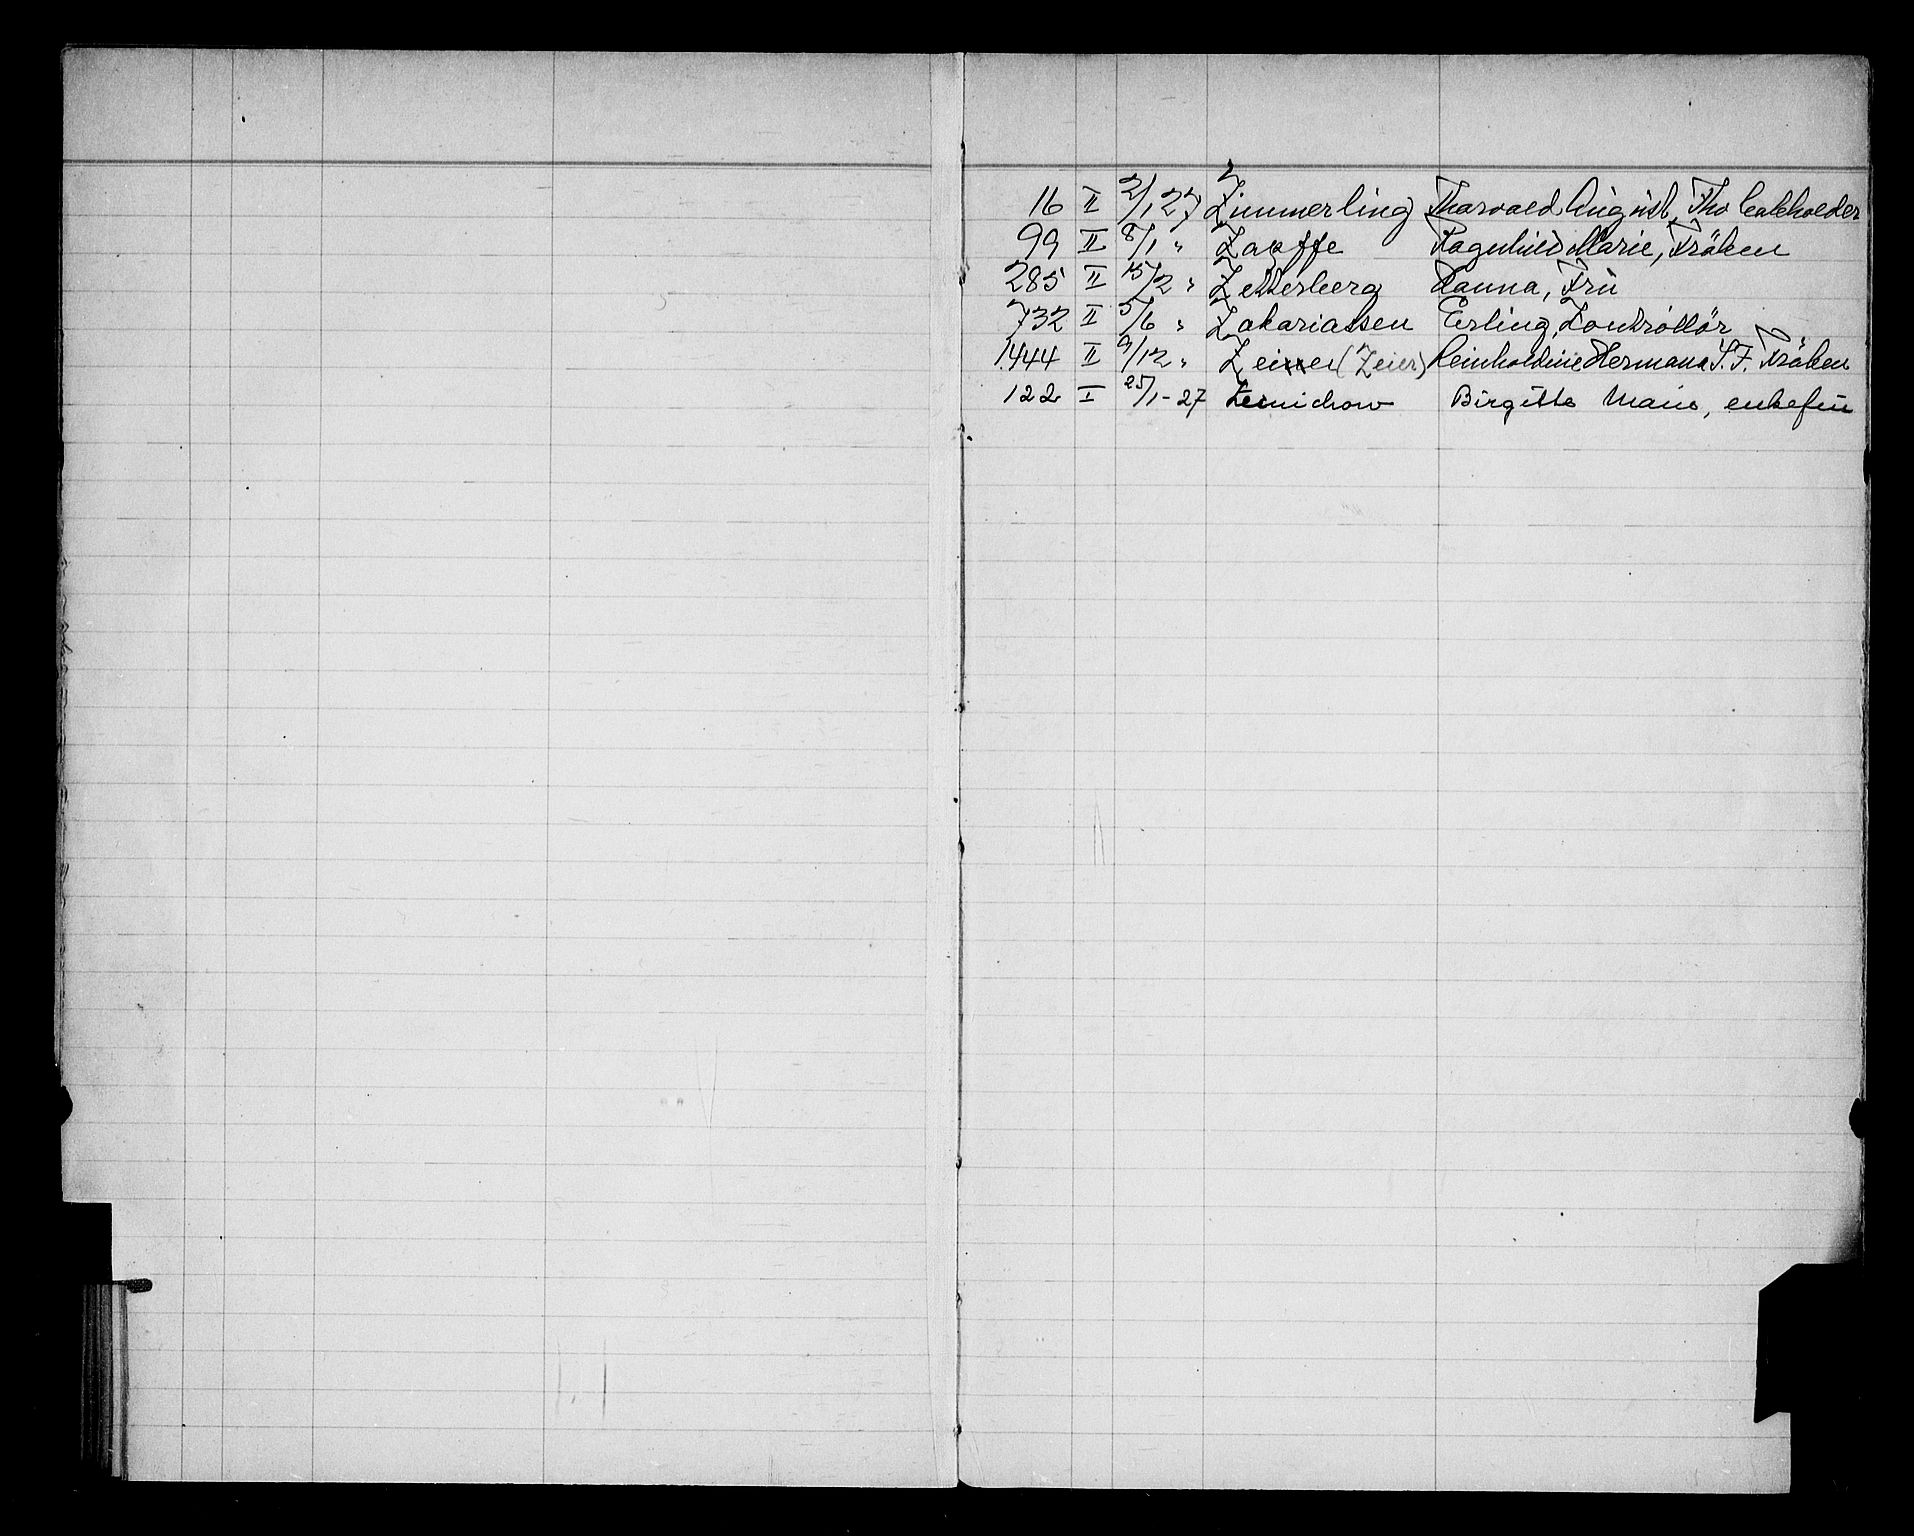 16 II 2/1 27 Zimmerling Thorvald August, Fhv. Caféholder
99 II 8/1 " Zapffe Ragnhild Marie, Fröken
285 II 15/2 " Zetterberg Hanna, Frü
732 II 5/6 " Zakariassen Erling, Kontrollör
1444 II 9/12 " Zeiner (Zeier) Reinholdine Hermana S. F. Fröken
122 I 25/1-27 Birgitte Marie, enkefru